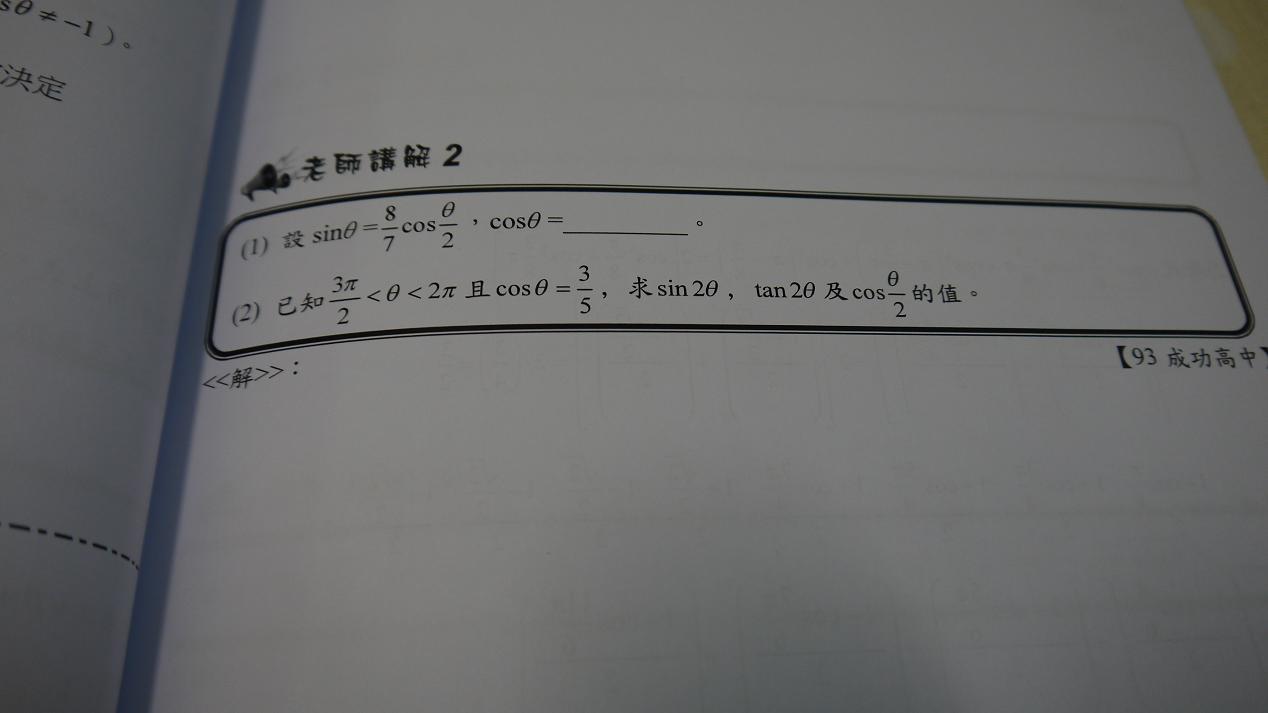 sθ ≠ −1)。
決定
老師講解 2
(1) 設 sinθ = 8/7 cos θ/2 ，cosθ = ________ 。
(2) 已知 3π/2 < θ < 2π 且 cosθ = 3/5 ，求 sin 2θ ， tan 2θ 及 cos θ/2 的值。
【93 成功高中】
<<解>>：